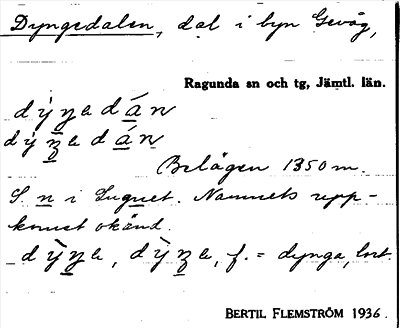 Dyngedalen, dal i byn Gevåg,
Ragunda sn och tg, Jämtl. län.
Belägen 1350 m.
S. n i Lugnet. Namnets upp-
komst okänd.
f. = dynga, lort.
BERTIL FLEMSTRÖM 1936.